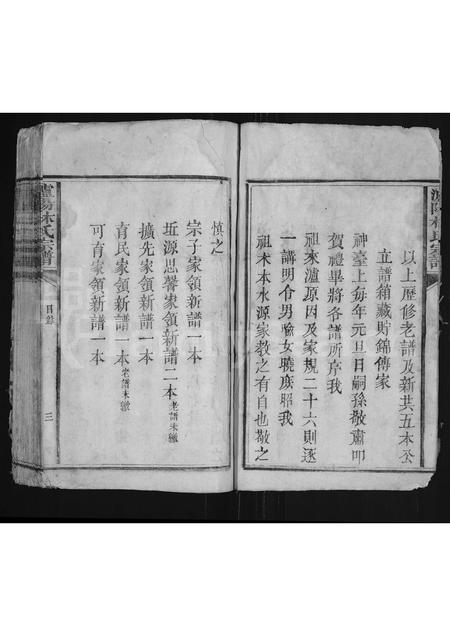 以上歷修老譜及新共五本公
立譜箱藏貯錦傳家
神臺上每年元旦日嗣孫敬肅叩
賀禮畢將各譜所序我
祖來瀘原因及家規二十六則逐
一講明令男喻女曉庶昭我
祖木本水源家教之有自也敬之
慎之
宗子家領新譜一本
近源思聲家領新譜二本老譜未繳
擴先家領新譜一本
育民家領新譜一本老譜未繳
可有家領新譜一本
林氏宗譜
目錄
三